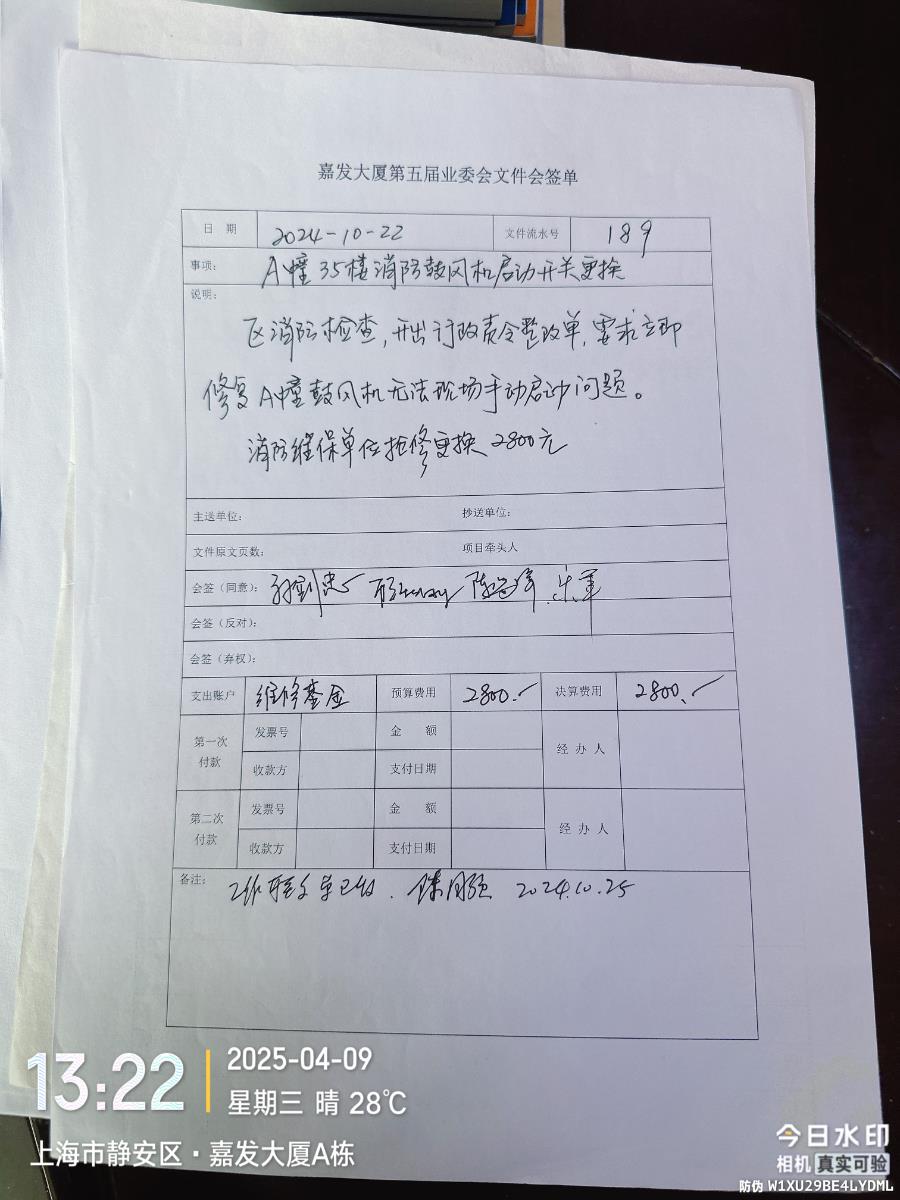 嘉发大厦第五届业委会文件会签单
日 期 2024-10-22 文件流水号 189
事项: A幢35楼消防鼓风机启动开关更换
说明:
区消防检查,开出订改责令整改单,要求立即
修复A幢鼓风机无法现场手动启动问题。
消防维保单位抢修更换2800元
主送单位: 抄送单位:
文件原文页数: 项目牵头人
会签(同意):
会签(反对):
会签(弃权):
支出账户 维修基金 预算费用 2800.- 决算费用 2800.-
第一次付款 发票号 金 额 经办人
收款方 支付日期
第二次付款 发票号 金 额 经办人
收款方 支付日期
备注: 2024.10.25
13:22 2025-04-09
星期三 晴 28℃
上海市静安区·嘉发大厦A栋
今日水印
相机 真实可验
防伪 W1XU29BE4LYDML